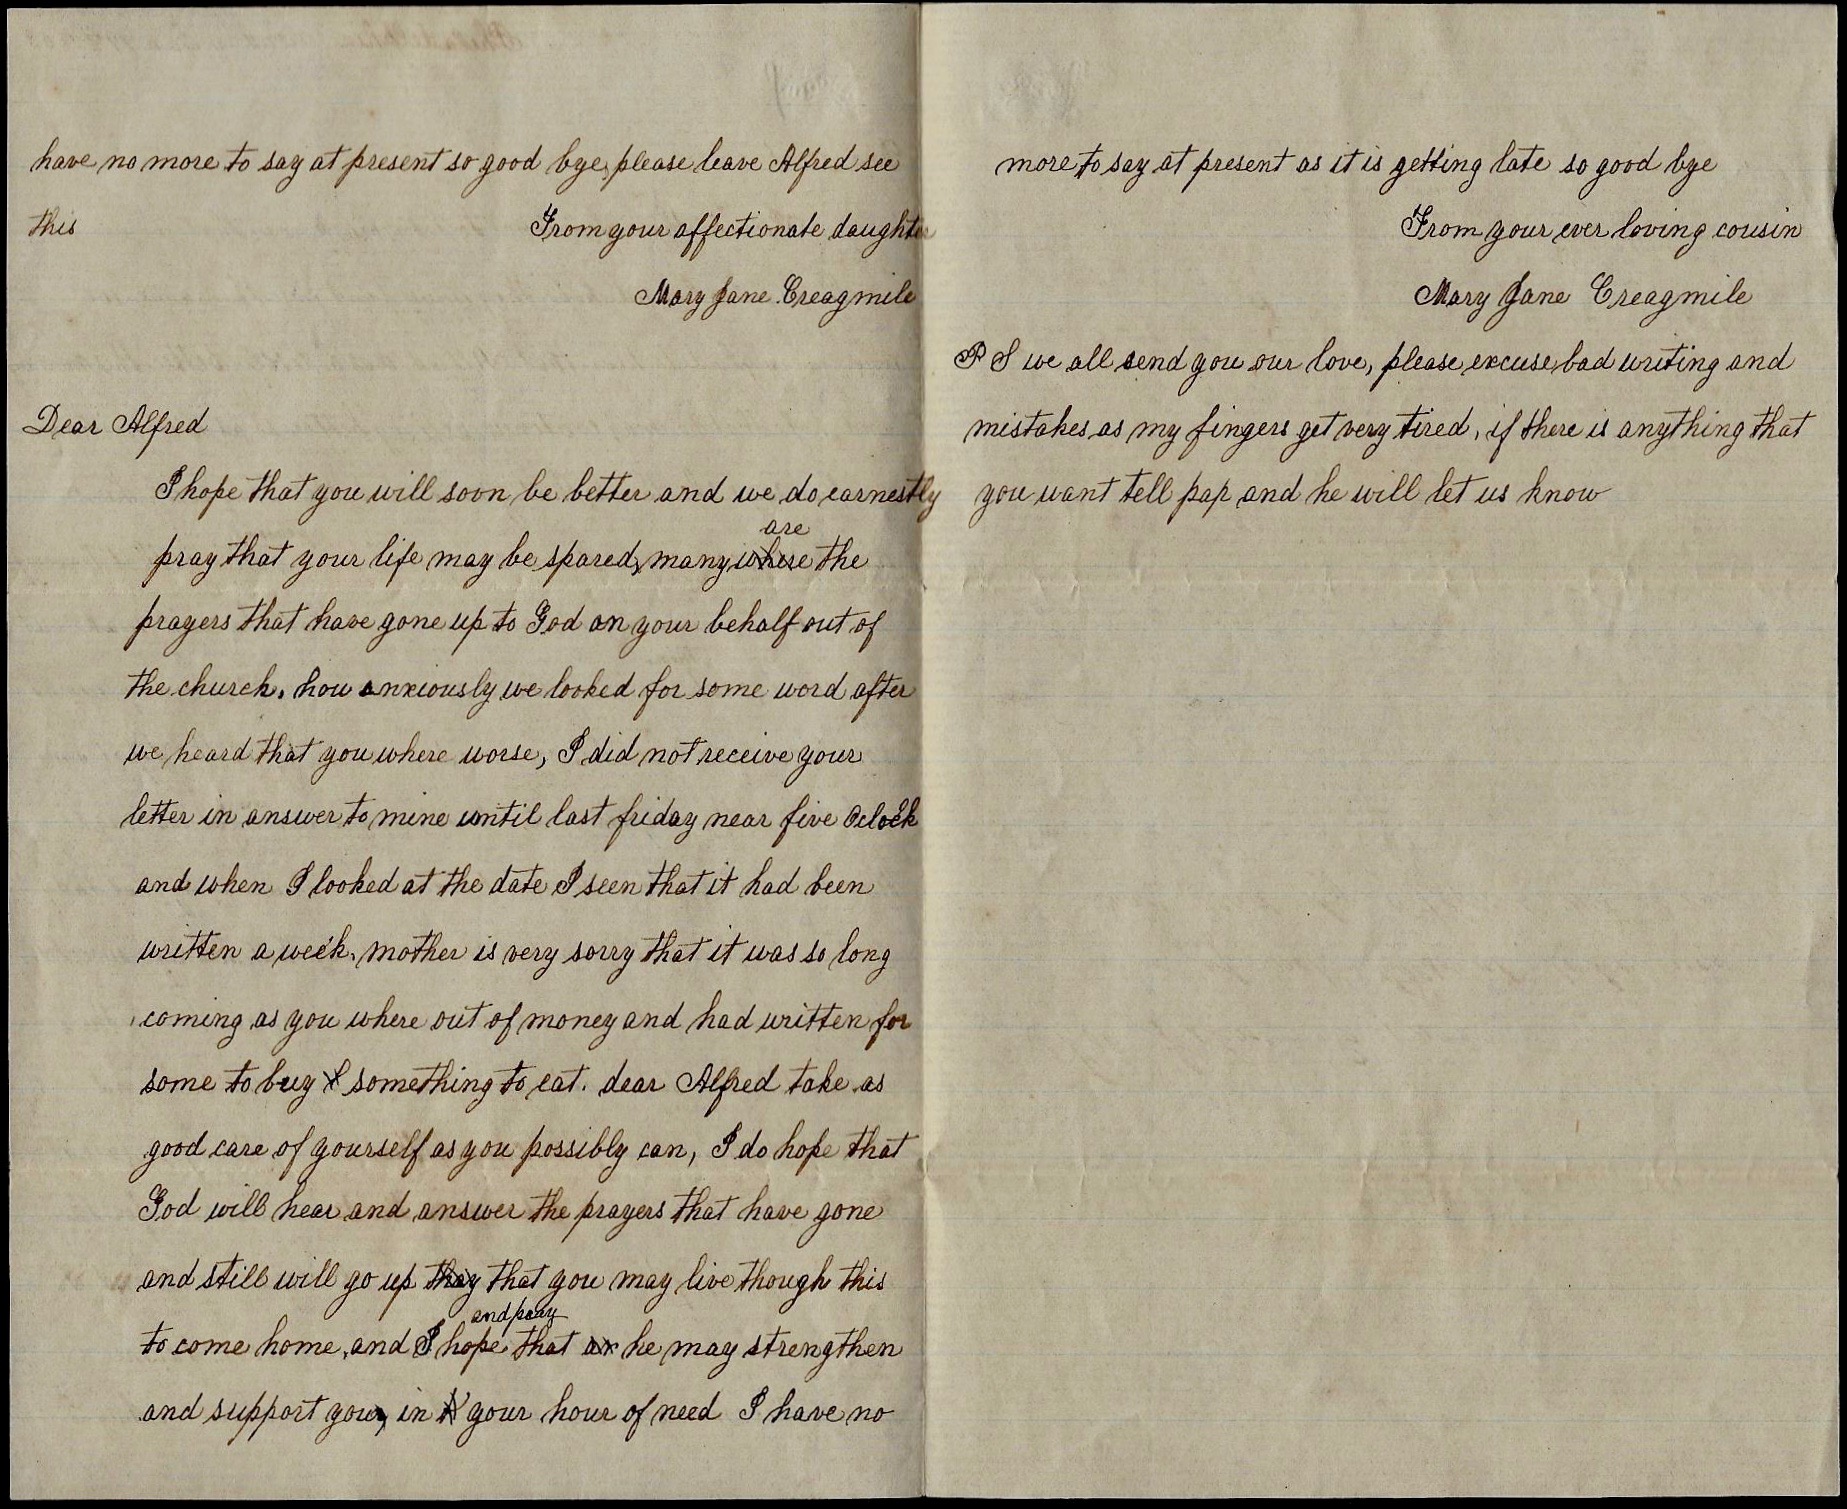 have no more to say at present so good bye, please leave Alfred see
this From your affectionate daughter
Mary Jane Creagmile
Dear Alfred
I hope that you will soon be better and we do earnestly
are
pray that your life may be spared, many where the
prayers that have gone up to God on your behalf out of
the church. how anxiously we looked for some word after
we heard that you where worse, I did not receive your
letter in answer to mine until last friday near five Oclock
and when I looked at the date I seen that it had been
written a week. mother is very sorry that it was so long
coming as you where out of money and had written for
some to buy something to eat. dear Alfred take as
good care of yourself as you possibly can, I do hope that
God will hear and answer the prayers that have gone
and still will go up thay that you may live though this
and pray
to come home, and I hope that he may strengthen
and support you, in your hour of need I have no
more to say at present as it is getting late so good bye
From your ever loving cousin
Mary Jane Creagmile
P S we all send you our love, please excuse bad writing and
mistakes as my fingers get very tired, if there is anything that
you want tell pap and he will let us know